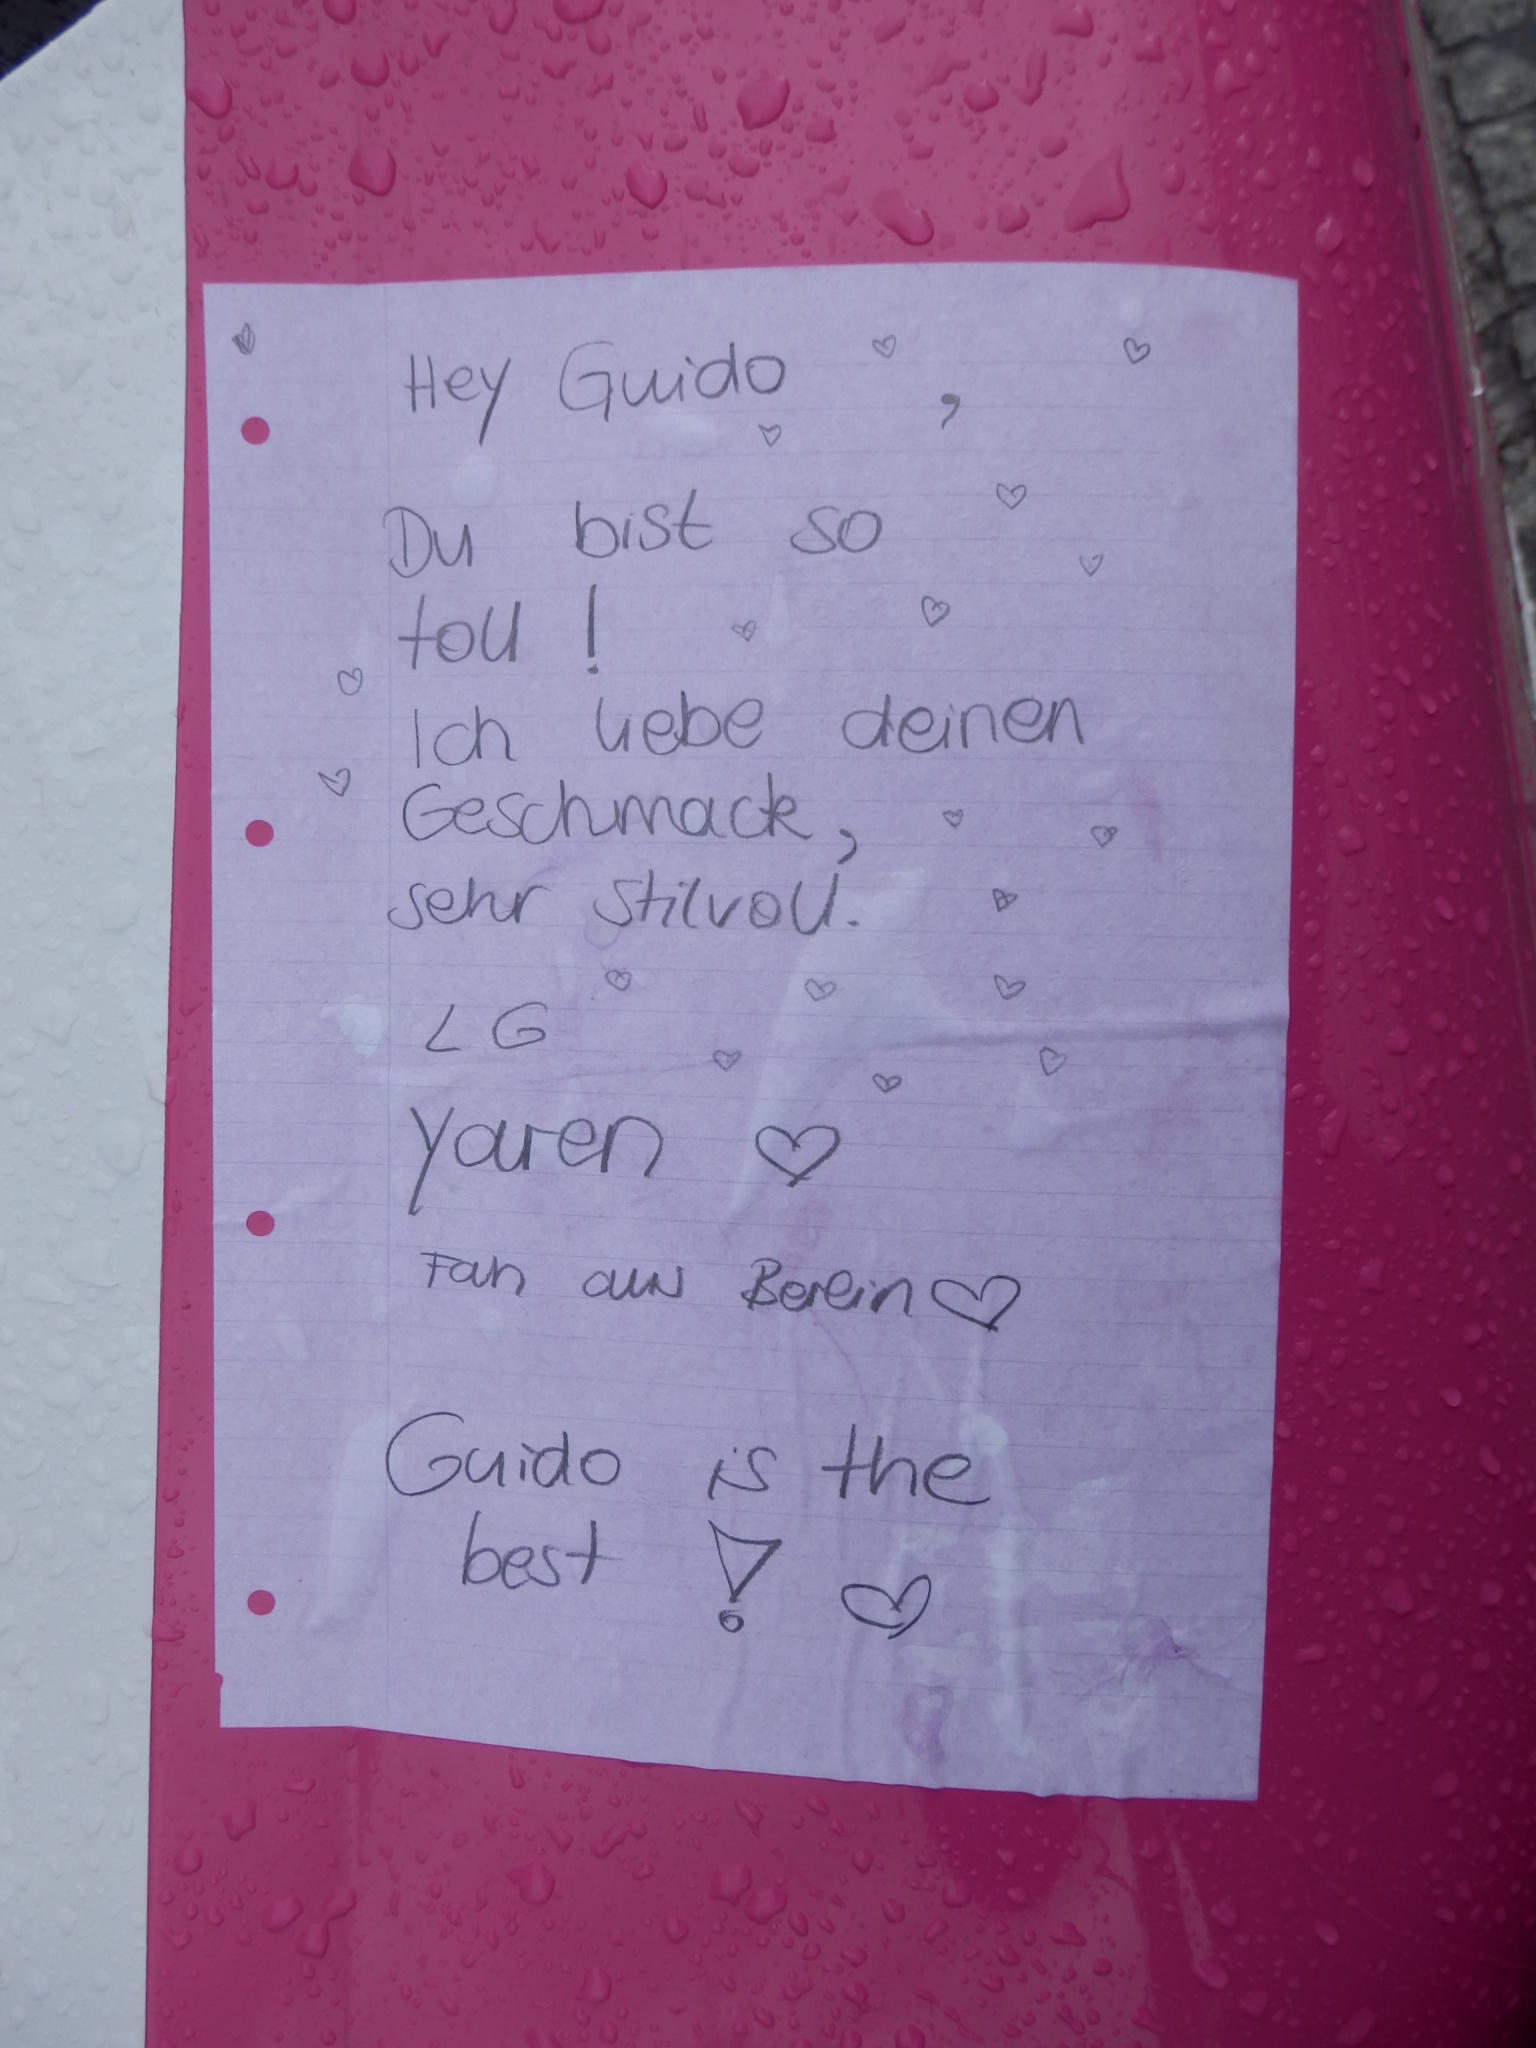 Hey Guido ,
Du bist so
toll !
Ich liebe deinen
Geschmack,
sehr stilvoll.
LG
Yaren ♡
Fan aus Berlin ♡
Guido is the
best ! ♡